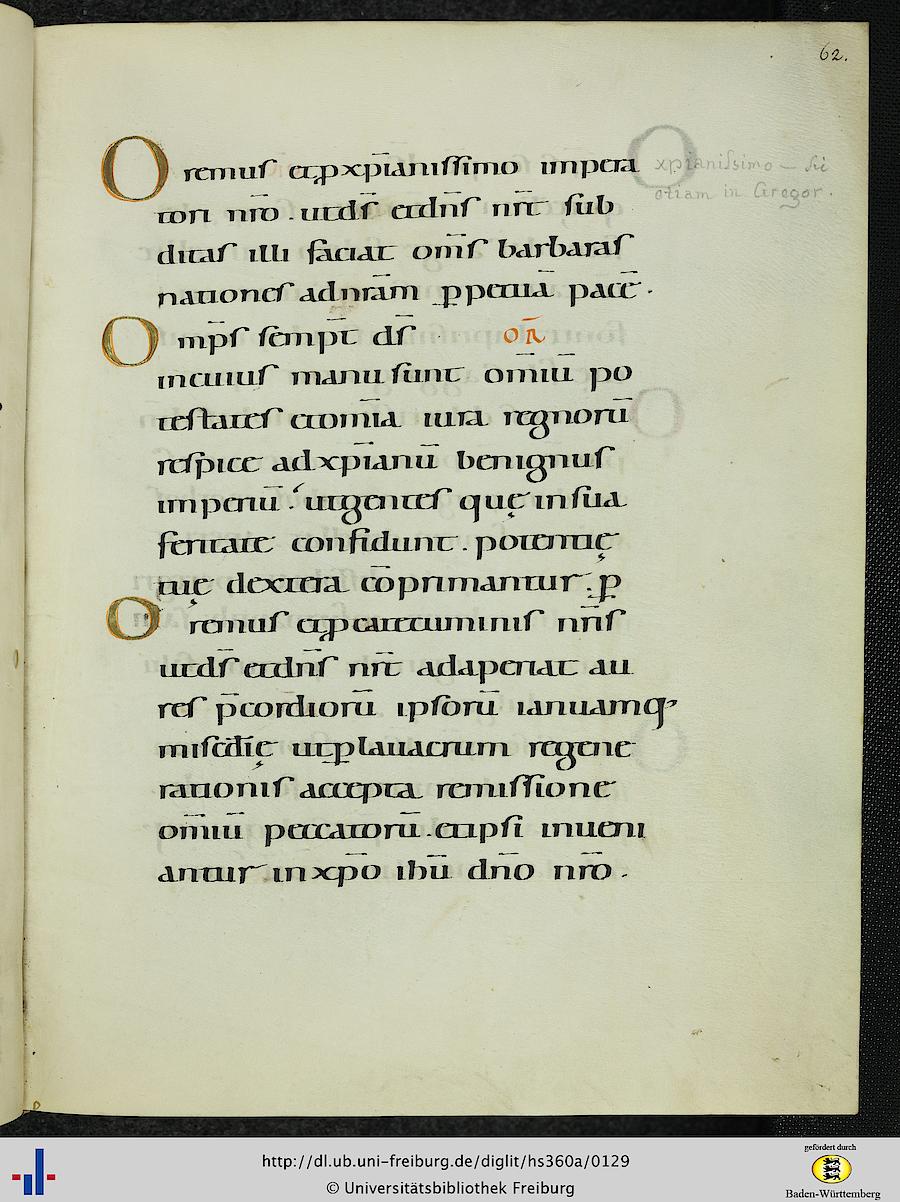 62.
Oremuſ et ꝑ xp̄ianiſſimo impera
xpianiſsimo – Sic
etiam in Gregor.
tori nr̄o . ut dſ̄ et dn̄ſ nr̄t ſub
ditaſ illi faciat om̄ſ barbaraſ
nationeſ ad nr̄am ꝑpetuā pacē .
Omp̄ſ ſemp̄t dſ̄ or̄
in cuiuſ manu ſunt om̄iū po
teſtateſ et om̄ia iura regnorū
reſpice ad xp̄ianū benignuſ
imperiū . ut genteſ quę in ſua
feritate confidunt . potentię
tuę dextera cōprimantur . ꝑ
Oremuſ et ꝑ catecuminiſ nr̄iſ
ut dſ̄ et dn̄ſ nr̄t adaperiat au
reſ p̄cordiorū ipſorū ianuamq;
miſcd̄ię ut ꝑ lauacrum regene
rationiſ accepta remiſſione
om̄iū peccatorū . et ipſi inueni
antur in xp̄o ih̄ū dn̄o nr̄o .
http://dl.ub.uni-freiburg.de/diglit/hs360a/0129
© Universitätsbibliothek Freiburg
gefördert durch
Baden-Württemberg